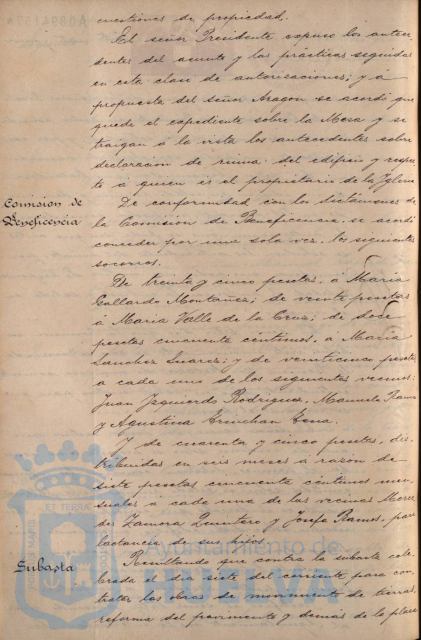 cuestiones de propiedad.
El señor Presidente expuso los antece-
dentes del asunto y las prácticas seguidas
en esta clase de autorizaciones; y a
propuesta del señor Aragon se acordó que
quede el expediente sobre la Mesa y se
traigan a la vista los antecedentes sobre
declaracion de ruina del edificio y respec-
to á quien es el propietario de la Iglesia
Comision de
Beneficencia
De conformidad con los dictámenes de
la Comision de Beneficencia se acordó
conceder por una sola vez, los siguientes
socorros.
De treinta y cinco pesetas, á Maria
Gallardo Montañez; de veinte pesetas
á Maria Valle de la Cruz; de doce
pesetas cincuenta céntimos, á Maria
Sanchez Suarez; y de veinticinco pesetas
a cada uno de los siguientes vecinos:
Juan Izquierdo Rodriguez, Manuela Ramos
y Agustina
Y de cuarenta y cinco pesetas, dis-
tribuidas en seis meses a razón de
siete pesetas cincuenta céntimos men-
suales á cada una de las vecinas
de Zamora Quintero y Josefa Ramos, para
lactancia de sus hijos.
Subasta
Resultando que contra la subasta cele-
brada el dia siete del corriente para con-
tratar las obras de movimiento de tierras,
reforma del pavimento y demás de la plaza
Ayuntamiento de
HUELVA
PORTUS MARIS
ET TERRÆ
CUSTODIA